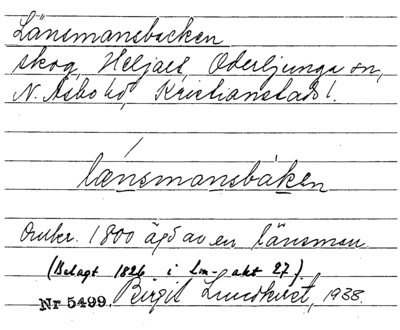 Länsmansbacken
skog, Heljalt, Oderljunga sn,
N. Åsbo hd, Kristianstads l.
lænsmansbaken
Omkr. 1800 ägd av en länsman
(Belagt 1826 i Lm-akt 27).
Nr 5499. Birgit Lundkvist, 1938.